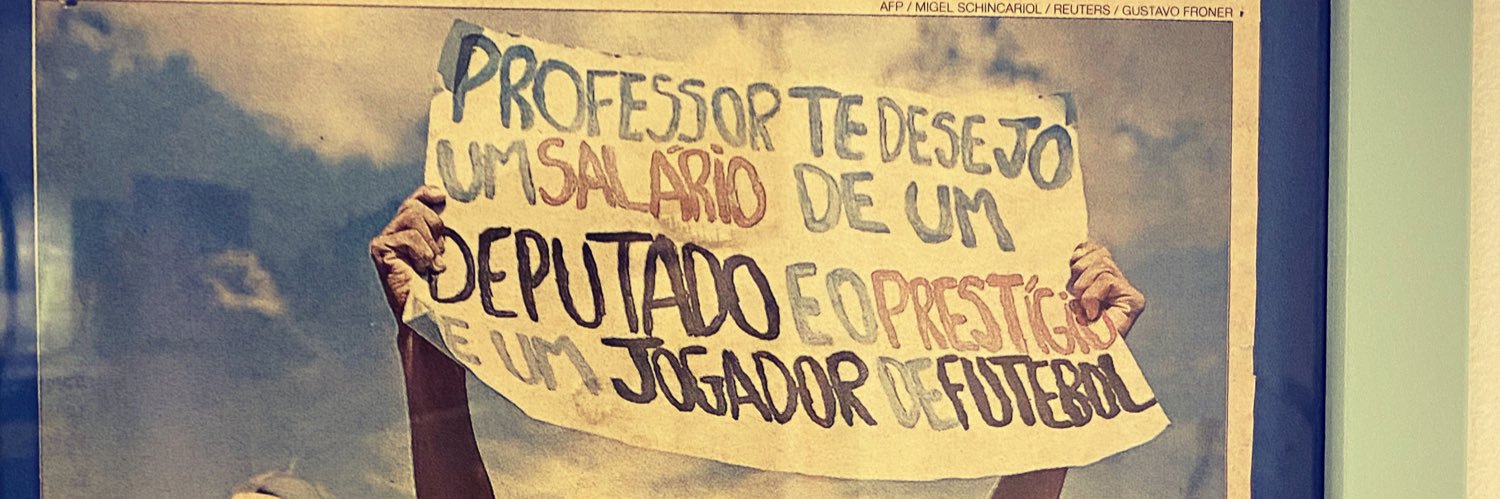 AFP / MIGEL SCHINCARIOL / REUTERS / GUSTAVO FRONER
PROFESSOR TE DESEJO
UM SALÁRIO DE UM
DEPUTADO E O PRESTÍGIO
E UM JOGADOR DE FUTEBOL